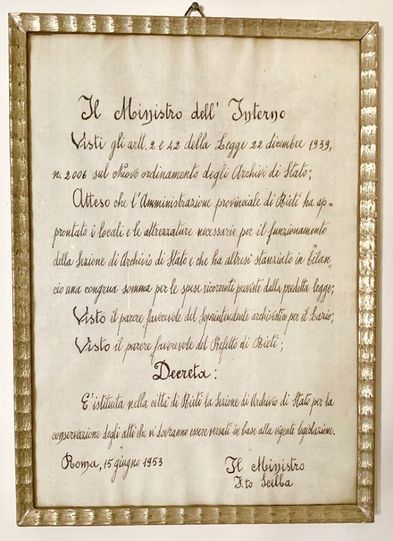 Il Ministro dell' Interno
Visti gli artt. 2 e 42 della Legge 22 dicembre 1939,
n. 2006 sul Nuovo ordinamento degli Archivi di Stato;
Atteso che l'Amministrazione provinciale di Rieti ha ap=
prontato i locali e le attrezzature necessarie per il funzionamento
della Sezione di Archivio di Stato e che ha altresì stanziato in bilan=
cio una congrua somma per le spese ricorrenti previste dalla predetta legge;
Visto il parere favorevole del Soprintendente archivistico per il Lazio;
Visto il parere favorevole del Prefetto di Rieti;
Decreta:
E' istituita nella città di Rieti la Sezione di Archivio di Stato per la
conservazione degli atti che vi dovranno essere versati in base alla vigente legislazione.
Roma, 15 giugno 1953
Il Ministro
F.to Scelba